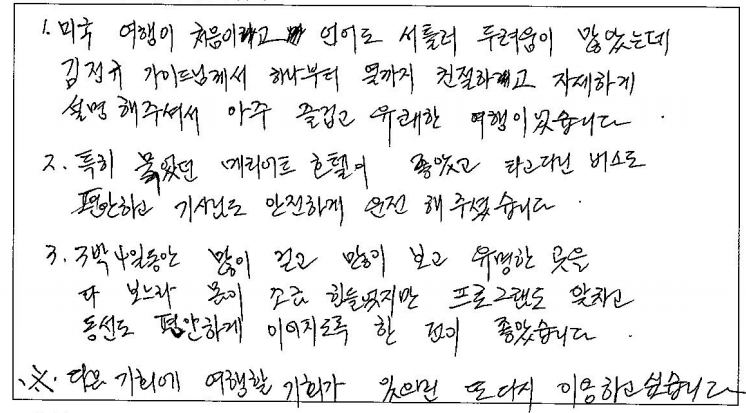 1. 미국 여행이 처음이라고 언어도 서툴러 두려움이 많았는데
김정규 가이드님께서 하나부터 끝까지 친절하고 자세하게
설명해주셔서 아주 즐겁고 유쾌한 여행이었습니다.
2. 특히 묵었던 메리어트 호텔이 좋았고 타고다닌 버스도
편안하고 기사님도 안전하게 운전 해주셨습니다.
3. 3박4일동안 많이 걷고 많이 보고 유명한 곳을
다 보느라 몸이 조금 힘들었지만 프로그램도 알차고
동선도 편안하게 이어지도록 한 점이 좋았습니다.
※. 다음 기회에 여행할 기회가 있으면 또다시 이용하고싶습니다